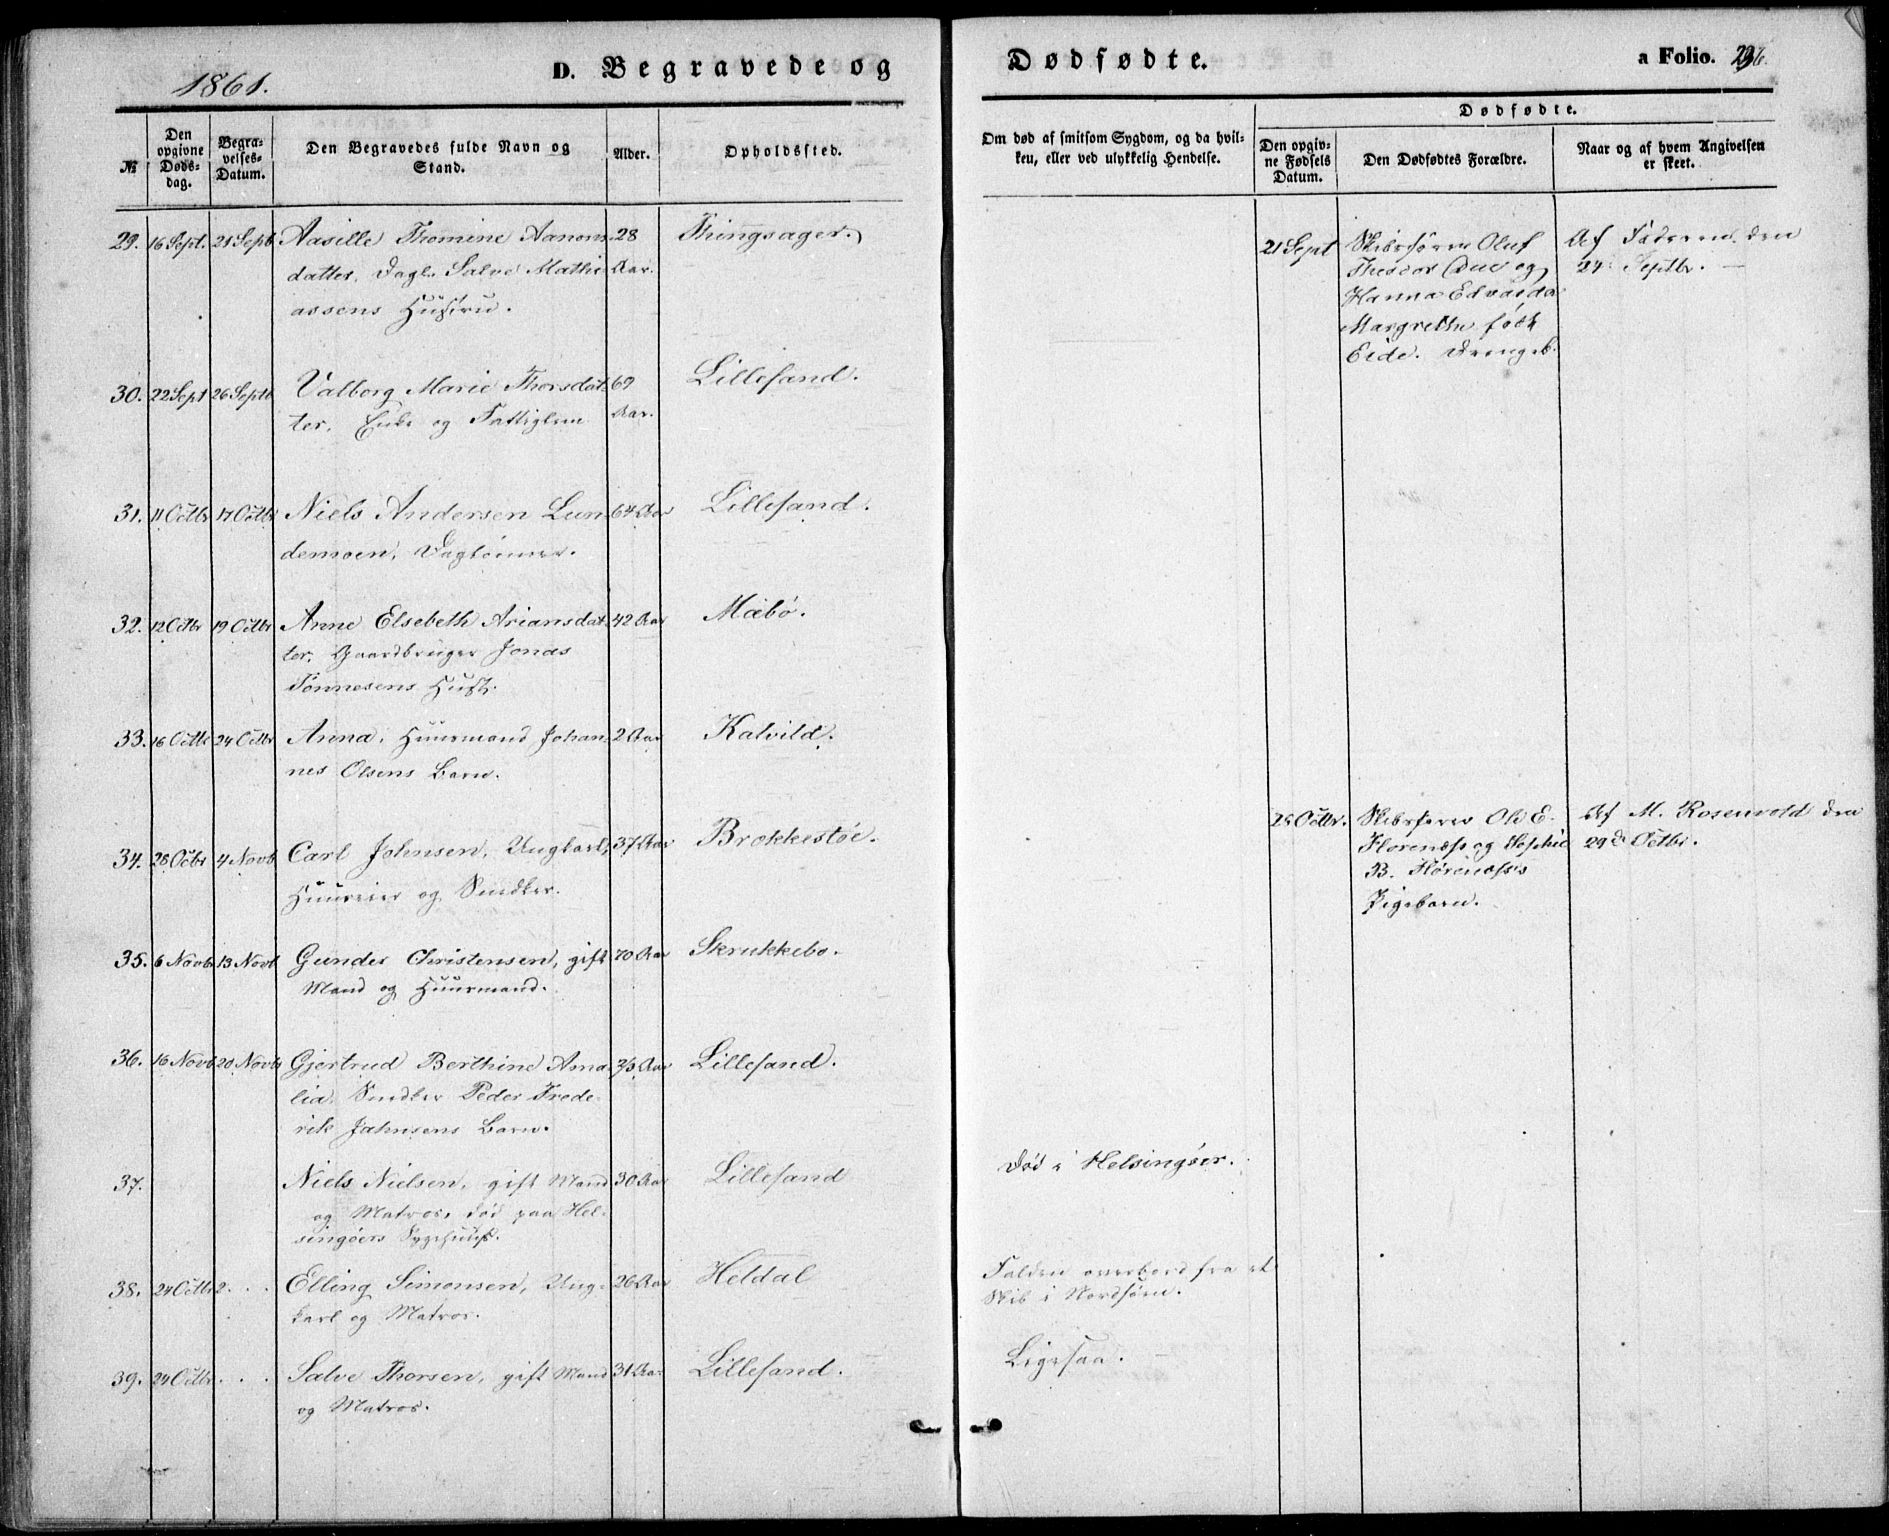 1861.
D. Begravede og
Dødfødte.
a Folio. 236.
№
Den opgivne Døds-dag.
Begra-velses-Datum.
Den Begravedes fulde Navn og Stand.
Alder.
Opholdssted.
Om død af smitsom Sygdom, og da hvil-ken, eller ved ulykkelig Hendelse.
Dødfødte.
Den opgiv-ne Fødsels Datum.
Den Dødfødtes Forældre.
Naar og af hvem Angivelsen er skeet.
29. 16 Sept. 21 Septb Aasille Thomine Aanons- 28 Thingsager.
datter, Dagl. Salve Mathi- Aar.
assens Hustru.
21 Sept Skibsfører Oluf Af Faderen den
Theodor Due og 24 Septbr.
Hanna Edvarda
Margrethe født
Eide. Drengeb.
30. 22 Sept 26 Septb Valborg Marie Thorsdat- 69 Lillesand.
ter, Enke og Fattiglem Aar.
31. 11 Octbr 17 Octbr Niels Andersen Lun- 64 Aar Lillesand.
demoen, Daglønner.
32. 12 Octbr 19 Octbr Anne Elsebeth Ariansdat- 42 Aar Mæbø.
ter, Gaardbruger Jonas
Tønnesens Hustr.
33. 16 Octbr 24 Octbr Anna, Huusmand Johan- 2 Aar Kalvild.
nes Olsens Barn.
34. 28 Octbr 4 Novb Carl Johnsen, Ungkarl, 37 Aar Brækkestøe.
Huuseier og Snedker.
28 Octbr. Skibsfører Ole E. Af M. Rosenvold den
Florenæss og Sophie 29d Octbr.
B. Florenæss's
Pigebarn.
35. 6 Novb 13 Novb Gunder Christensen, gift 70 Aar Skrukkebo.
Mand og Huusmand.
36. 16 Novb 20 Novb Gjertrud Berthine Ama- Aar Lillesand.
lia, Snedker Peder Frede-
rik Jahnsens Barn.
37. Niels Nielsen, gift Mand 30 Aar Lillesand Død i Helsingøer.
og Matros, død paa Hel-
singøers Sygehuus.
38. 24 Octbr Elling Simonsen, Ung- 26 Aar Heldal Falden overbord fra et
karl og Matros. Skib i Nordsøen.
39. 24 Octbr . . . Salve Thorsen, gift Mand 31 Aar Lillesand. Ligesaa.
og Matros.